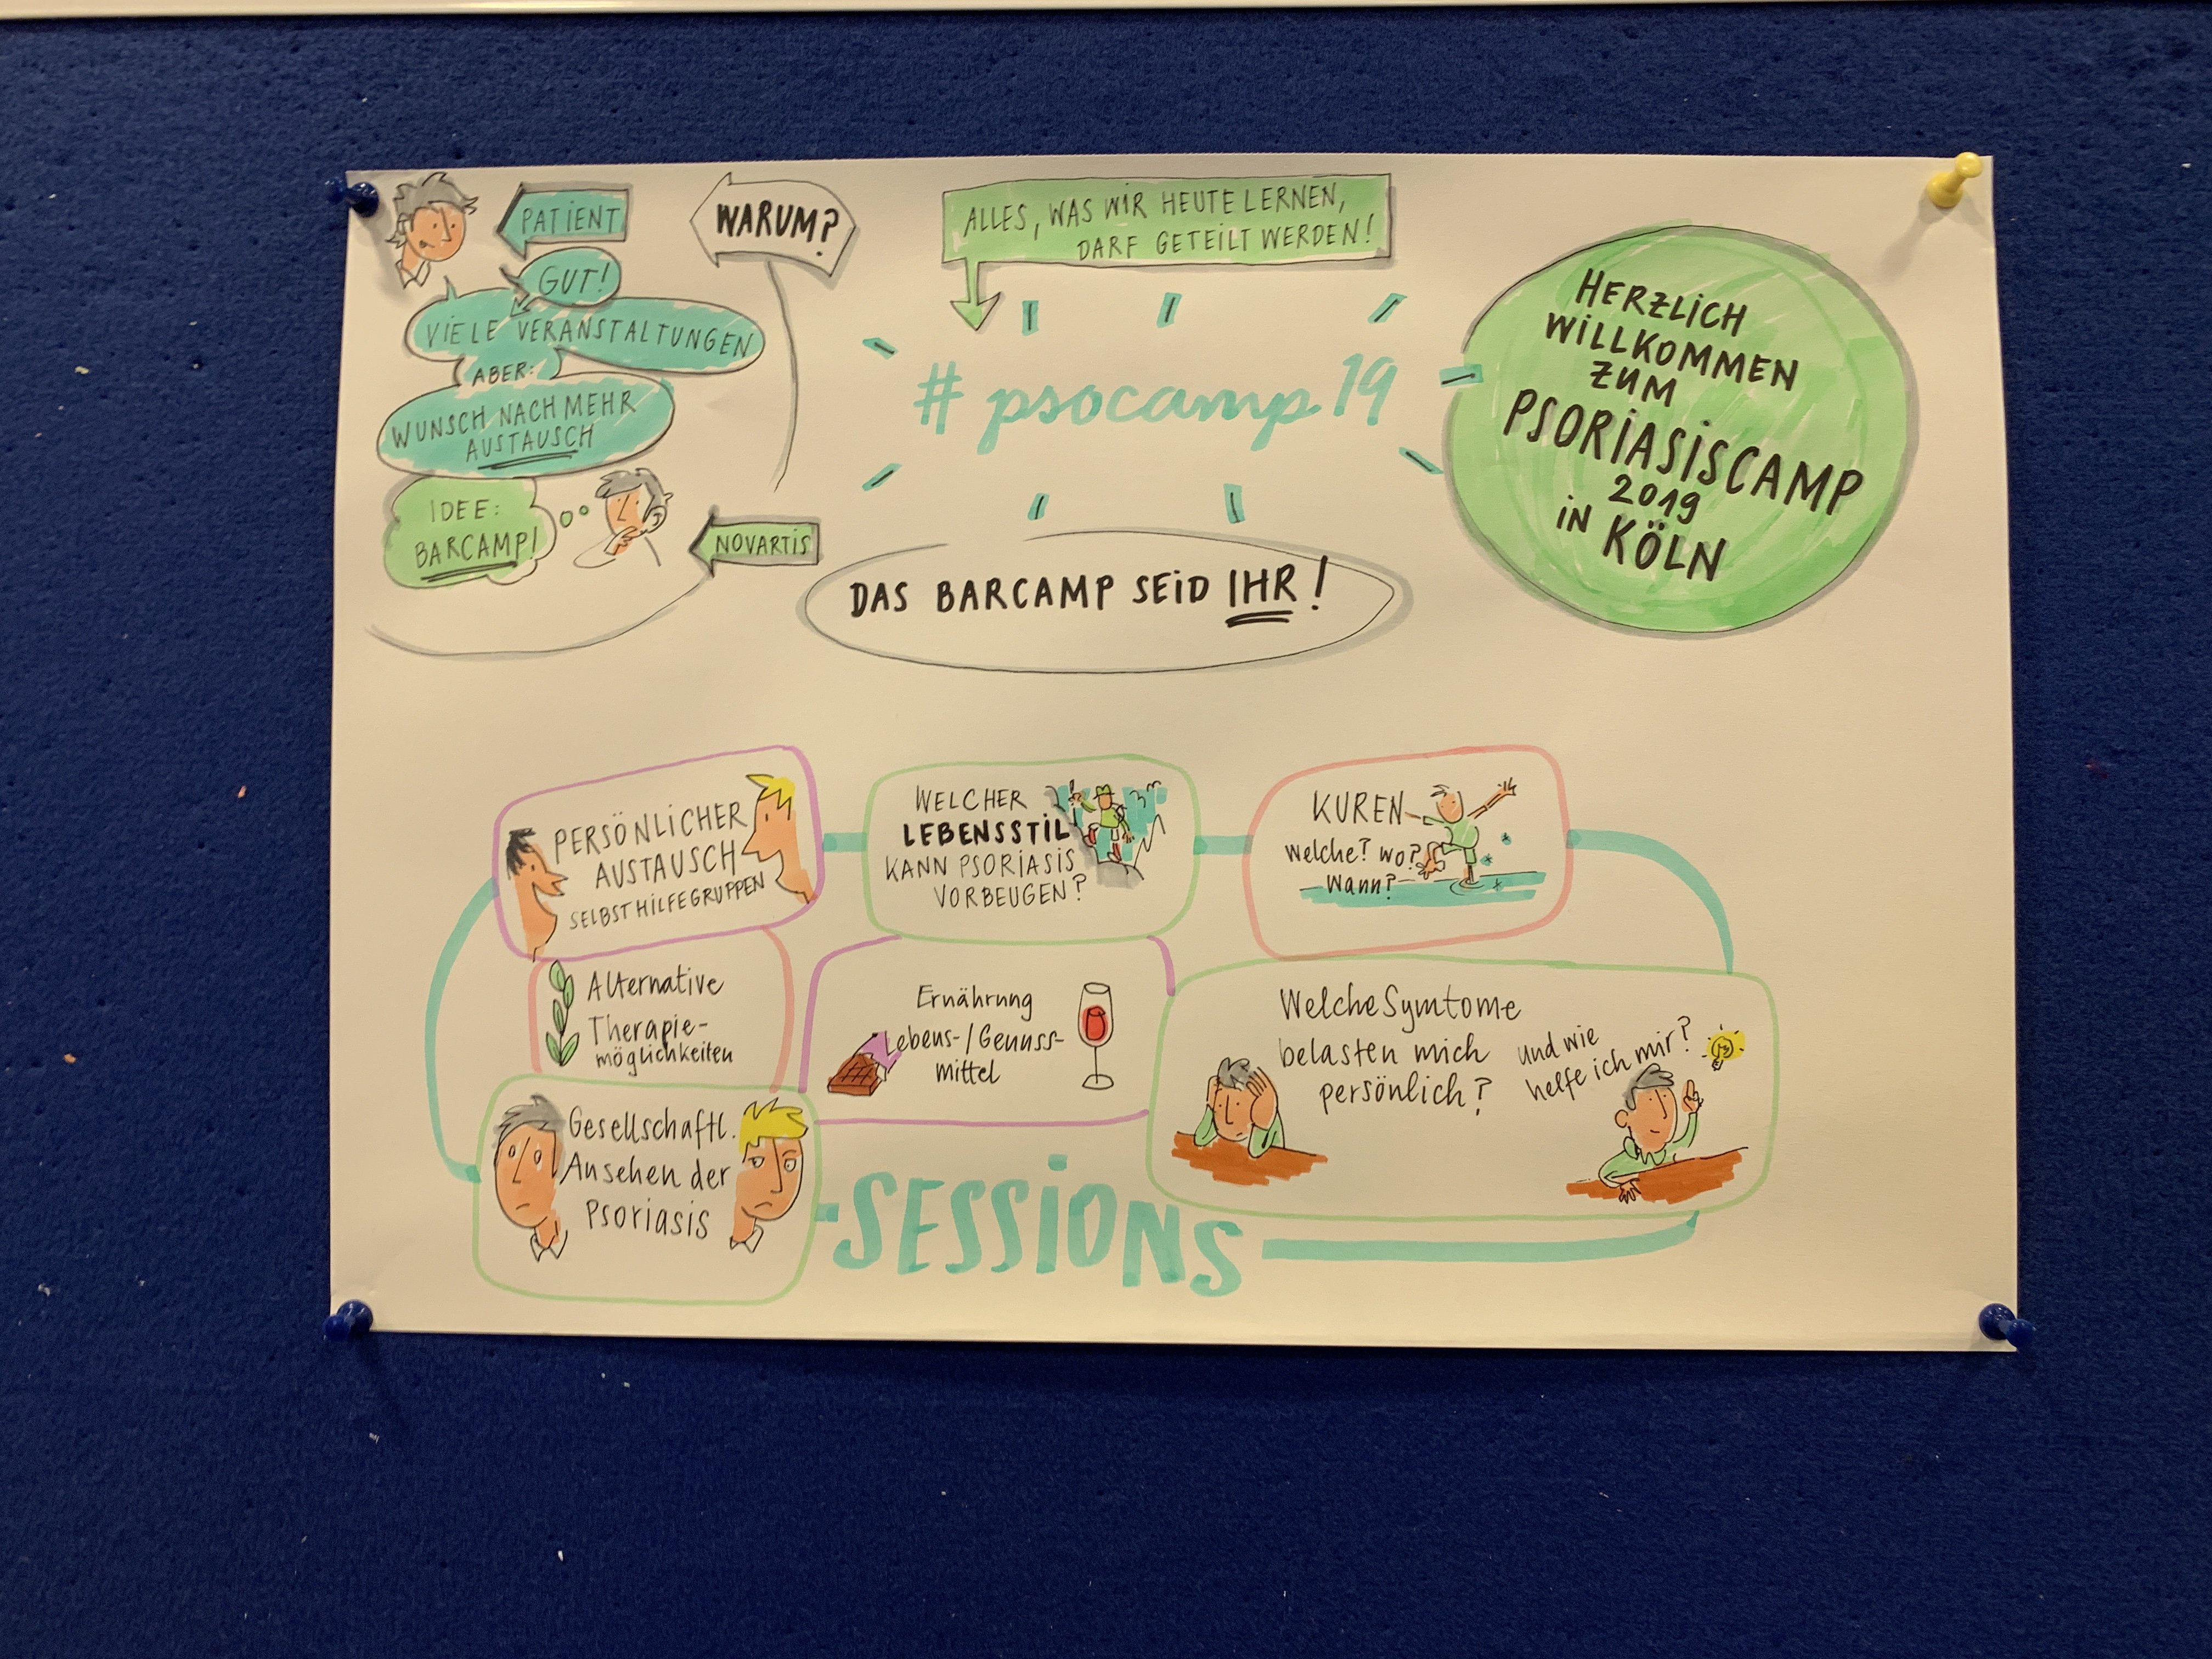 PATIENT
GUT!
VIELE VERANSTALTUNGEN
ABER:
WUNSCH NACH MEHR
AUSTAUSCH
IDEE:
BARCAMP!
NOVARTIS
WARUM?
ALLES, WAS WIR HEUTE LERNEN,
DARF GETEILT WERDEN!
# psocamp19
DAS BARCAMP SEID IHR!
HERZLICH
WILLKOMMEN
ZUM
PSORIASISCAMP
2019
IN KÖLN
PERSÖNLICHER
AUSTAUSCH
SELBSTHILFEGRUPPEN
WELCHER
LEBENSSTIL
KANN PSORIASIS
VORBEUGEN?
KUREN
Welche? Wo?
Wann?
Alternative
Therapie-
möglichkeiten
Ernährung
Lebens-/Genuss-
mittel
Welche Symtome
belasten mich
persönlich?
und wie
helfe ich mir?
Gesellschaftl.
Ansehen der
Psoriasis
SESSIONS